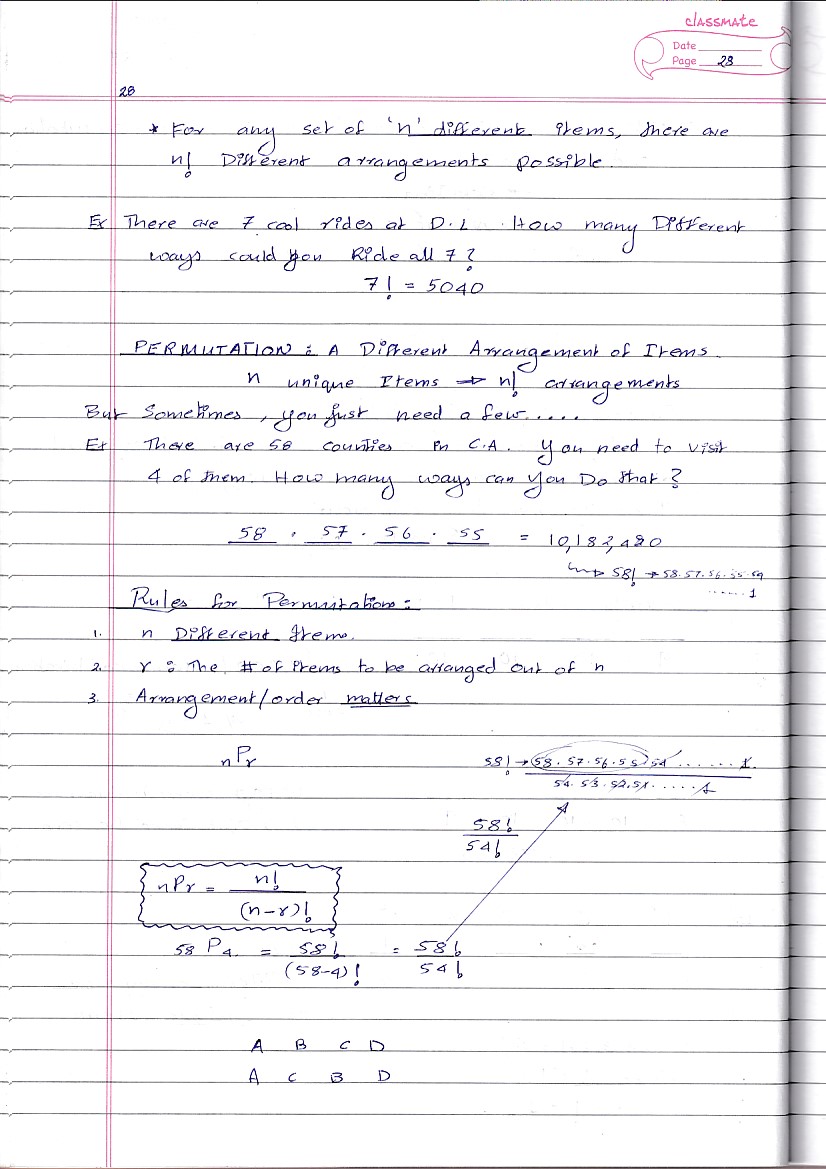 classmate
Date
Page 28
28
* For any set of 'n' different items, there are
n! Different arrangements possible.
Ex There are 7 cool rides at D.L. How many Different
ways could you Ride all 7?
7! = 5040
PERMUTATION : A Different Arrangement of Items.
n unique Items → n! arrangements
But Sometimes, you just need a few.....
Ex There are 58 counties in C.A. You need to visit
4 of them. How many ways can you Do that?
58 . 57 . 56 . 55 = 10,182,480
↳ 58! → 58.57.56.55.54
...... 1
Rules for Permutations :
1. n Different Items.
2. r : The # of items to be arranged out of n
3. Arrangement/order matters
nPr
58! → 58.57.56.55.54 ....... 1.
54.53.52.51. ..... 1
58!
54!
nPr = n!
(n-r)!
58 P4. = 58! = 58!
(58-4)! 54!
A B C D
A C B D